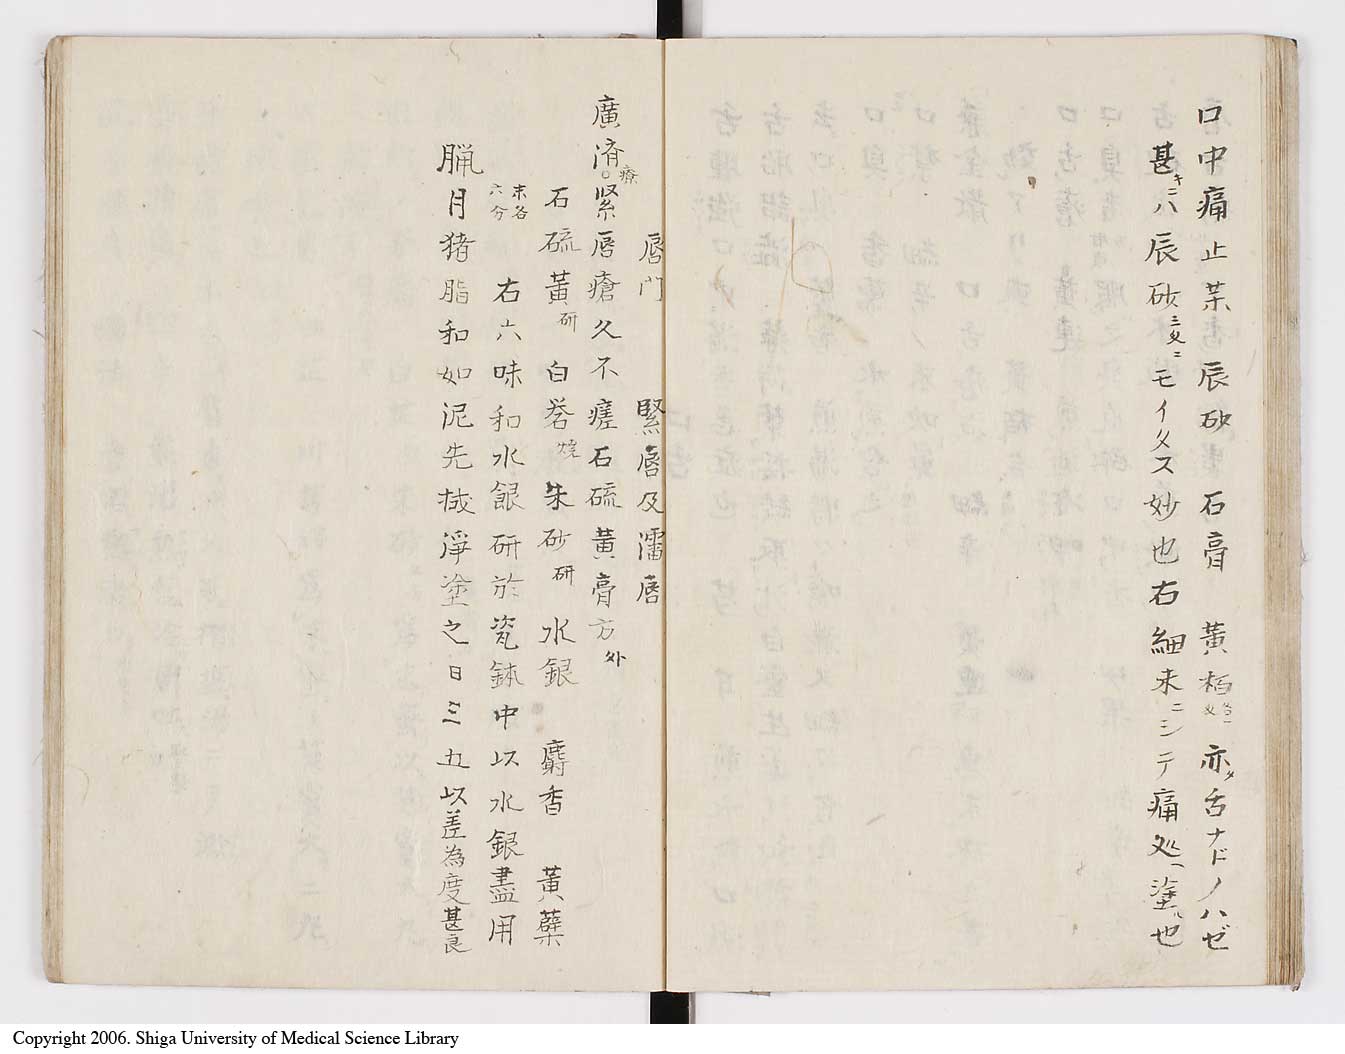 口中痛止茱 辰砂 石膏 黄栢各一匁 亦タ舌ナドノハゼ
甚キニハ辰砂三匁ニモイタス妙也右細末ニシテ痛処ヘ塗ル也
唇門 緊唇及瀋唇
廣済療緊唇瘡久不瘥石硫黄膏方外
石硫黄研 白礬燒 朱砂研 水銀 麝香 黄蘗
末各六分 右六味和水銀研於瓷鉢中以水銀盡用
臘月猪脂和如泥先拭淨塗之日三五以差為度甚良
Copyright 2006. Shiga University of Medical Science Library